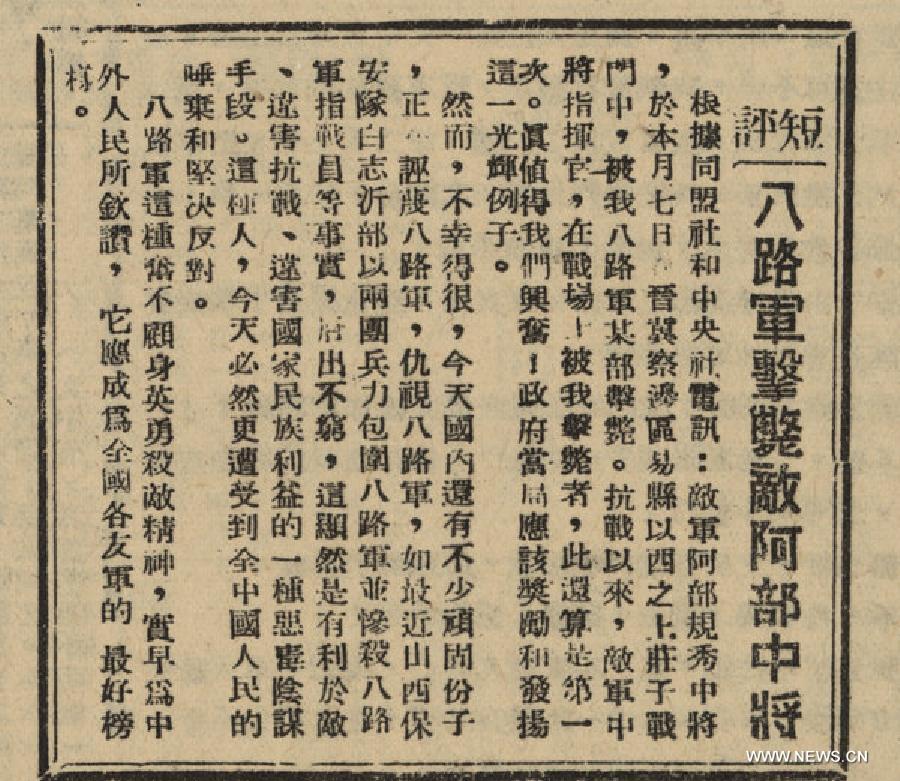 短評
八路軍擊斃敵阿部中將
根據同盟社和中央社電訊：敵軍阿部規秀中將
，於本月七日 晉冀察邊區易縣以西之上莊子戰
門中，被我八路軍某部擊斃。抗戰以來，敵軍中
將指揮官，在戰場上被我擊斃者，此還算是第一
次。眞値得我們興奮！政府當局應該獎勵和發揚
這一光輝例子。
然而，不幸得很，今天國內還有不少頑固份子
，正 誣蔑八路軍，仇視八路軍，如最近山西保
安隊白志沂部以兩團兵力包圍八路軍並慘殺八路
軍指戰員等事實，層出不窮，這顯然是有利於敵
、違害抗戰、違害國家民族利益的一種惡毒陰謀
手段。這種人，今天必然更遭受到全中國人民的
唾棄和堅決反對。
八路軍這種奮不顧身英勇殺敵精神，實早爲中
外人民所欽讚，它應成爲全國各友軍的 最好榜
樣。
WWW.NEWS.CN